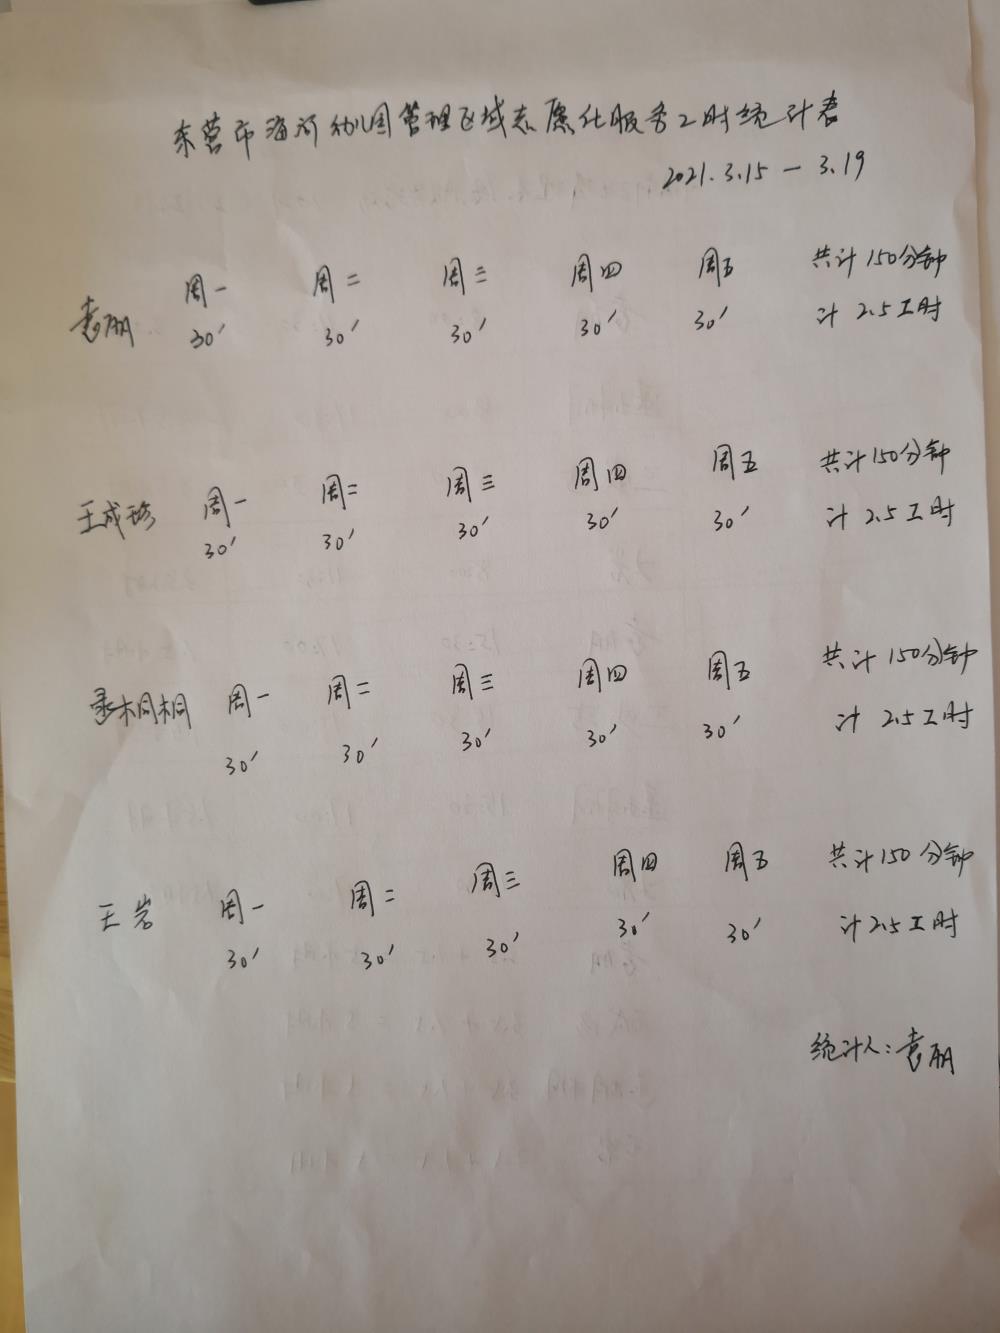 东营市海河幼儿园管理区域志愿化服务工时统计表
2021.3.15 — 3.19
周一 周二 周三 周四 周五 共计150分钟
袁丽 30′ 30′ 30′ 30′ 30′ 计 2.5工时
周一 周二 周三 周四 周五 共计150分钟
王成珍 30′ 30′ 30′ 30′ 30′ 计 2.5工时
周一 周二 周三 周四 周五 共计150分钟
桐桐 30′ 30′ 30′ 30′ 30′ 计 2.5工时
周一 周二 周三 周四 周五 共计150分钟
王岩 30′ 30′ 30′ 30′ 30′ 计2.5工时
统计人：袁丽